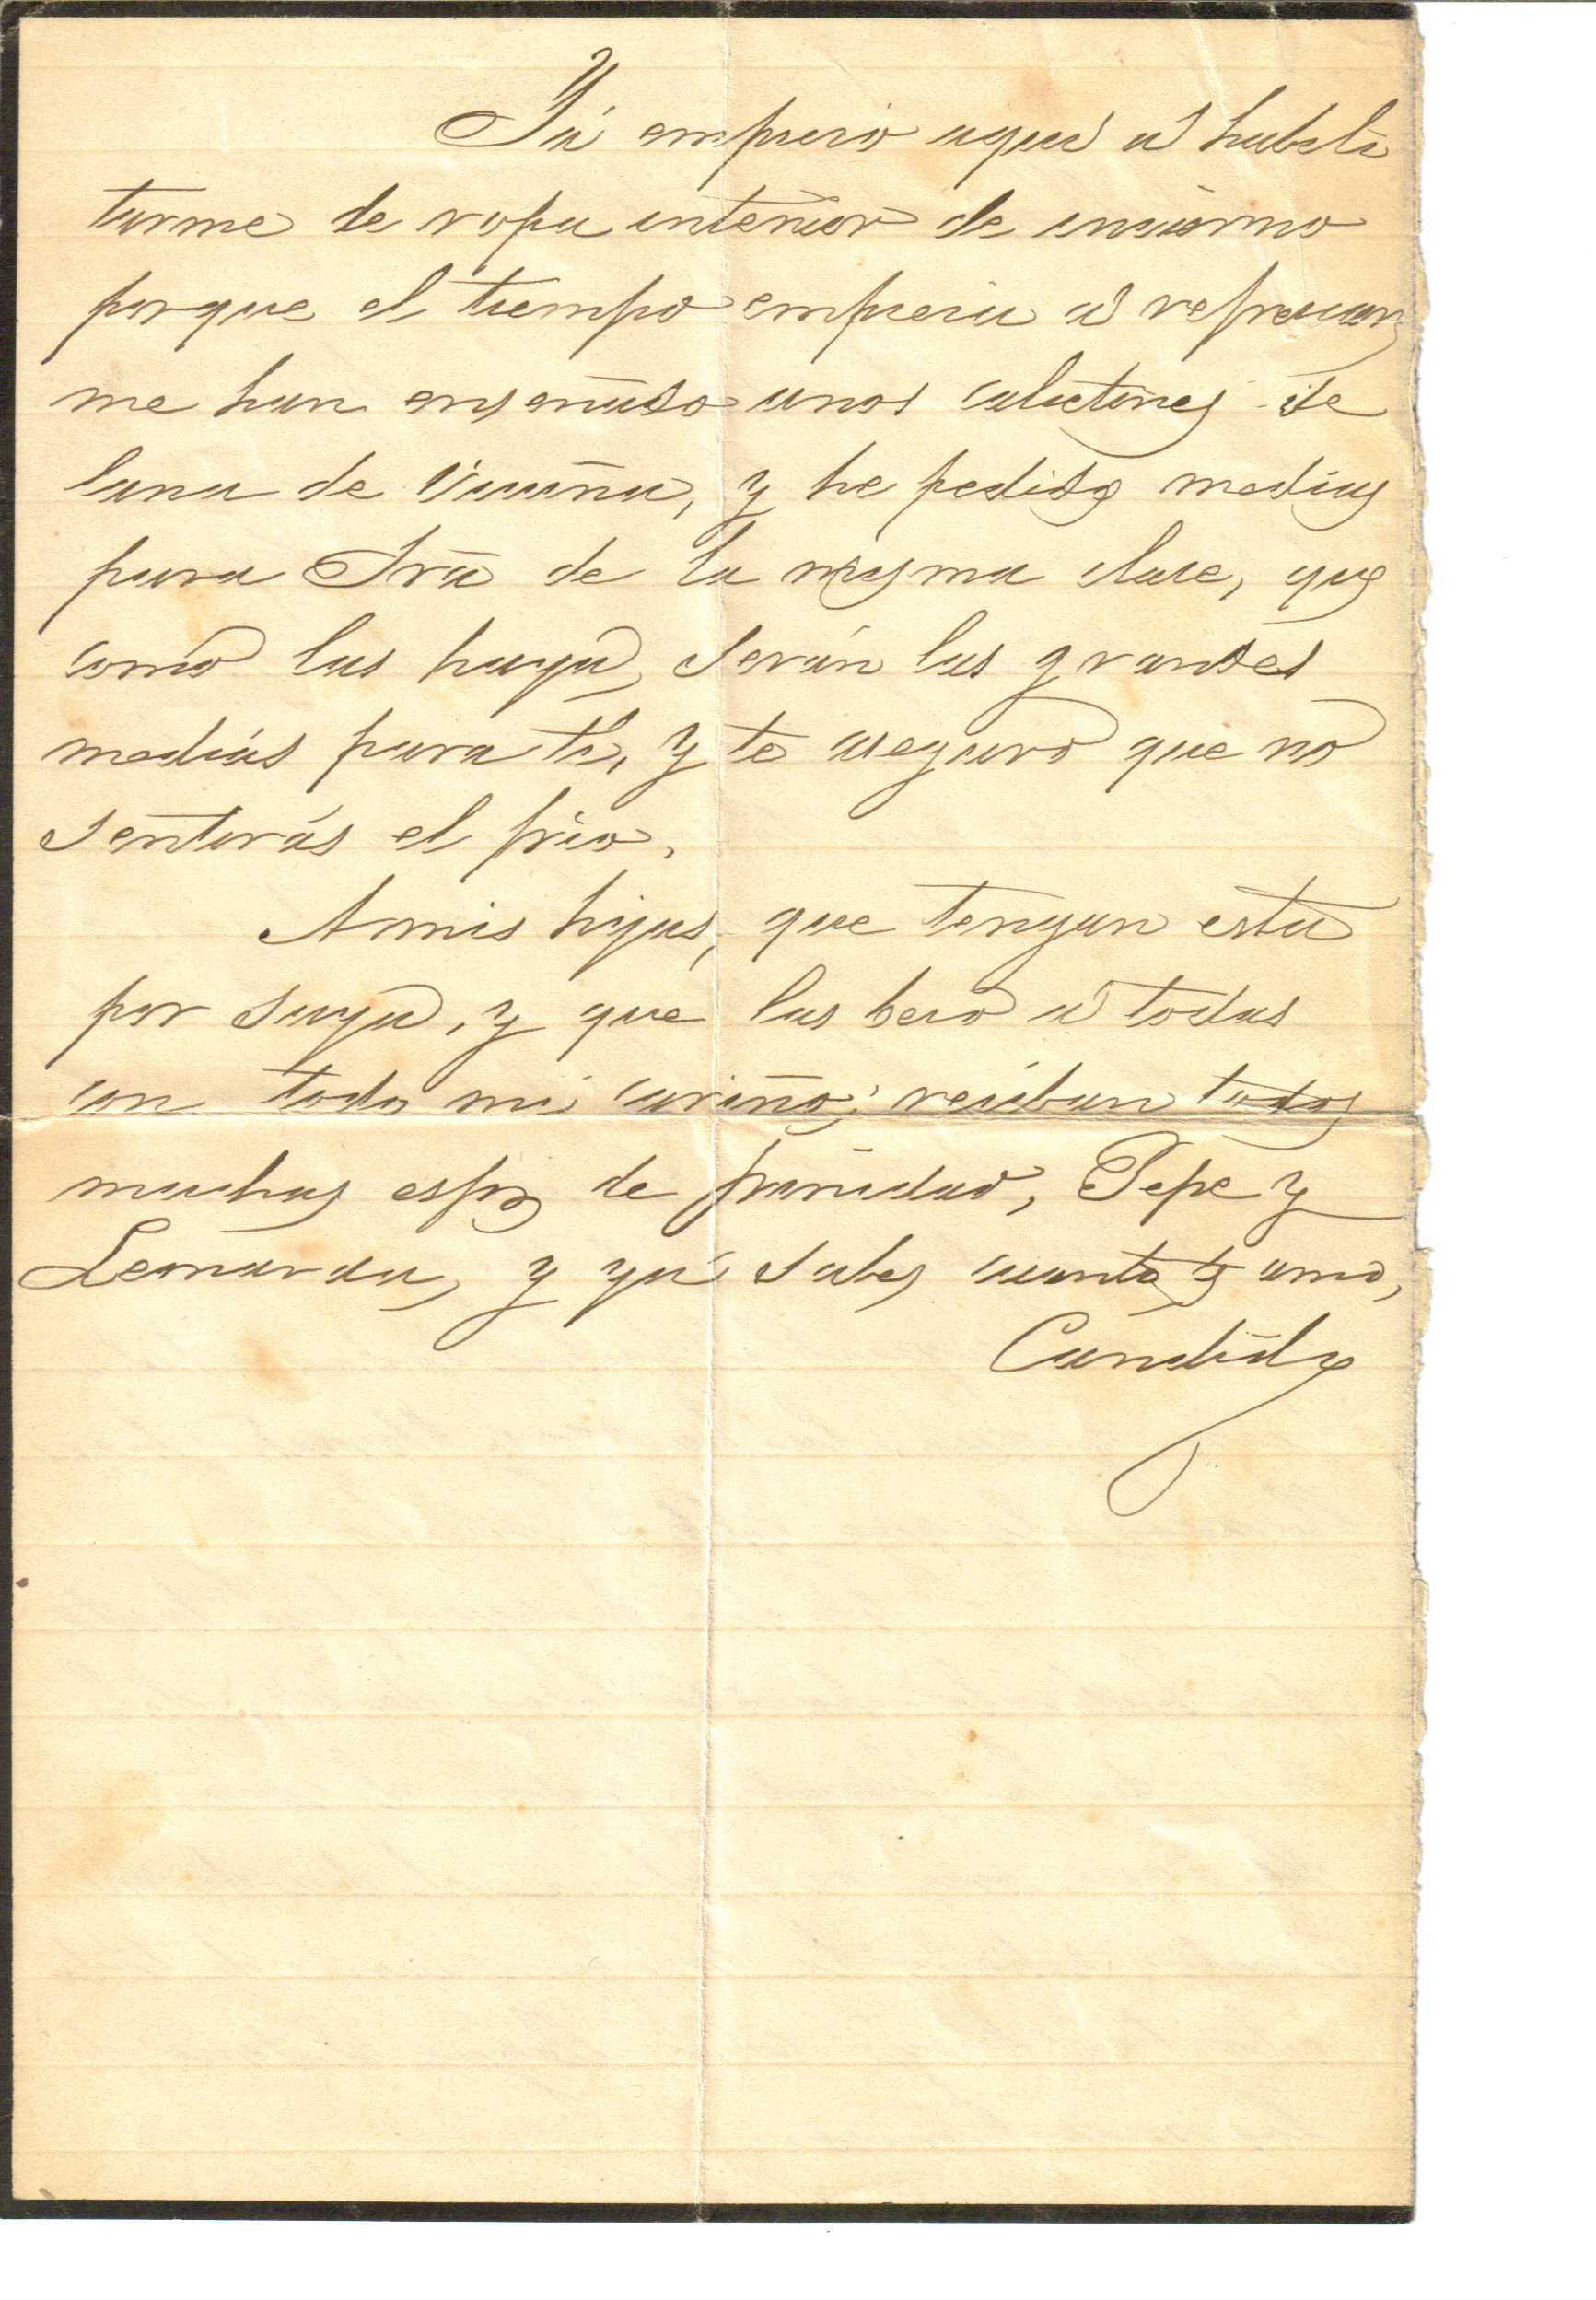 Yá empieso aquí á habili
tarme de ropa interior de invierno
porque el tiempo empieza á refrescar,
me han enseñado unos calcetines de
lana de Vicuña, y he pedido medias
para Srã de la misma clase, que
como las haya, serán las grandes
medias para tí, y te aseguro que no
sentirás el frio.
A mis hijas, que tengan esta
por suya, y que las beso á todas
con todo mi cariño; reciban todos
muchas de Pepe y
y yá sabes cuanto te amo,
Cándido